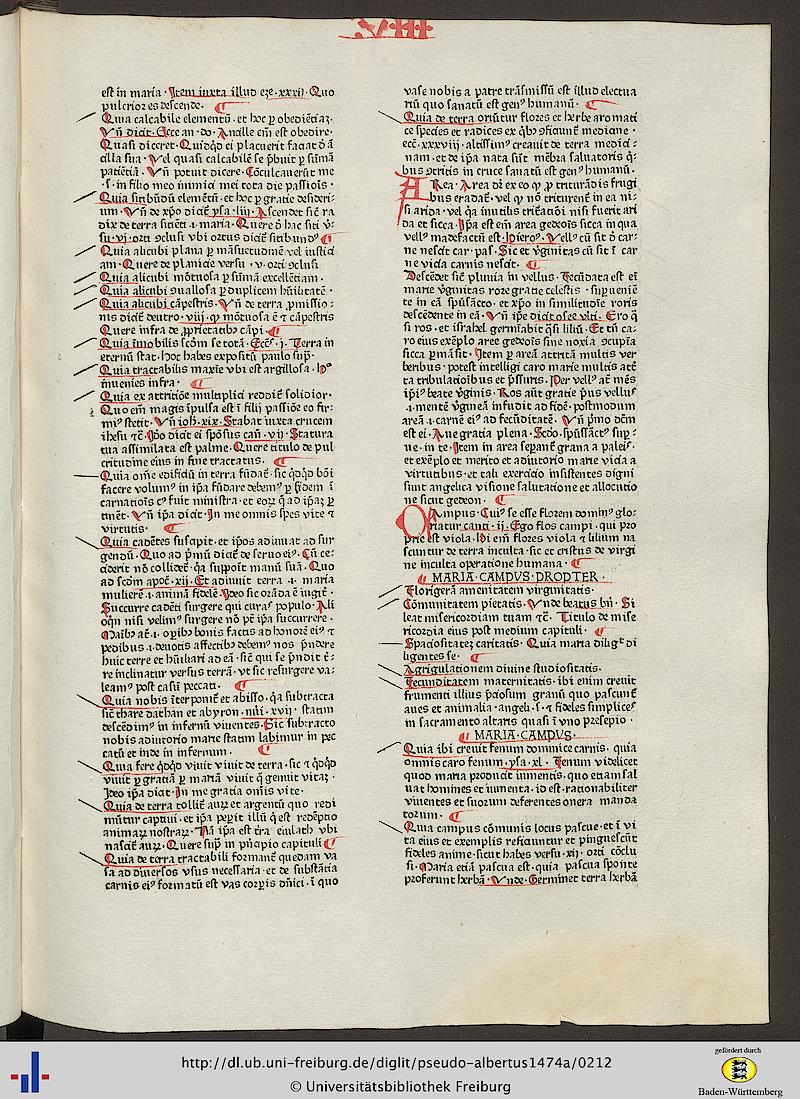 XVIII
est in maria · Item iuxta illud eze · xxxij · Quo
pulcrior es descende ·
Quia calcabile elementū · et hoc ꝑ obediētiaꝫ ·
Vn̄ dicit · Ecce an · do · Ancille em̄ est obedire ·
Quasi diceret · Quidqd ei placuerit faciat ꝺ̄ ā
cilla sua · Vel quasi calcabilē se p̄buit ꝑ sūmā
patiētiā · Vn̄ potuit dicere · Cōculcauerūt me
· s · in filio meo inimici mei tota die passiōis ·
Quia sitibūdū elementū · et hoc ꝑ gratie desideri-
um · Vn̄ de xpo dicit̄ ysa · liij · Ascendet sic̄ ra
dix de terra sitiēti · i · maria · Quere
su · vj · orti ꝯclusi vbi ortus dicit̄ sitibund⁹
Quia alicubi plana ꝑ māsuetudinē vel iustici
am · Quere de planicie versu · v · orti ꝯclusi
Quia alicubi mōtuosa ꝑ sūmā excellētiam ·
Quia alicubi ꝯuallosa ꝑ duplicem hūilitatē ·
Quia alicubi cāpestris · Vn̄ de terra ꝓmissio-
nis dicit̄ deutro · viij · ꝙ mōtuosa ē ⁊ cāpestris
Quere infra de ꝓprietatibꝫ cāpi ·
Quia īmobilis scḋm se totā · Ecc̄s · j · Terra in
eternū stat · hoc habes expositū paulo sup̄ ·
Quia tractabilis maxie vbi est argillosa ·
inuenies infra ·
Quia ex attritiōe multiplici reddit̄ solidior ·
Quo em̄ magis īpulsa est ī filij passiōe eo fir-
mi⁹ stetit · Vn̄ ioh · xix · Stabat iuxta crucem
ihesu ⁊c̄ · Ipso dicit ei spōsus can̄ · vij · Statura
tua assimilata est palme · Quere titulo de pul
critudine eius in fine tractatus ·
Quia om̄e edificiū in terra fūdat̄ · sic qdqd bōi
facere volum⁹ in ip̄a fūdare debem⁹ ꝑ fidem ī
carnatiois c⁹ fuit ministra · et eoꝝ q̄ ad ip̄aꝫ ꝑ
tinēt · Vn̄ ip̄a dicit · In me omnis spes vite ⁊
virtutis ·
Quia cadētes suscipit · et ip̄os adiuuat ad sur
gendū · Quo ad p̄mū dicit̄ de seruo ei⁹ · Cū ce-
ciderit nō collidet̄ · q̄a suppoīt manū suā · Quo
ad scḋm apoc̄ · xij · Et adiuuit terra · i · maria
mulierē · i · animā fidelē · Ideo sic orāda ē iugit̄ ·
Succurre cadēti surgere qui curas populo · Ali
oqn si velim⁹ surgere nō pt̄ ip̄a succurrere ·
Manib⁹ at̄ · i · opib⁹ bonis factis ad honorē ei⁹ ⁊
pedibus · i · deuotis affectib⁹ debem⁹ nos p̄ndere
huic terre et hūiliari ad eā · sic̄ qui se p̄ndit t̄-
re inclinatur versus terrā · vt sic resurgere va-
leam⁹ post casū peccati ·
Quia nobis īterponit̄ et abisso · q̄a subtracta
sic̄ thare dathan et abyron · nūi · xvij · statim
descēdim⁹ in infernū viuentes · Sic subtracto
nobis adiutorio marie statim labimur in pec
catū et inde in infernum ·
Quia fere qdqd viuit viuit de terra · sic ⁊ qdqd
viuit ꝑ gratiā ꝑ mariā viuit q̄ genuit vitaꝫ ·
Ideo ip̄a dicit · In me gratia om̄is vite ·
Quia de terra tollit̄ auꝝ et argentū quo redi
mūtur captiui · et ip̄a peperit illū q̄ est redēptio
animaꝝ nostraꝝ · Nā ip̄a est t̄ra euilath vbi
nascit̄ auꝝ · Quere sup̄ in p̄ncipio capituli
Quia de terra tractabili formant̄ quedam va
sa ad diuersos vsus necessaria · et de substātia
carnis ei⁹ formatū est vas corpis dn̄ici · ī quo
vase nobis a patre trāsmissū est illud electua
riū quo sanatū est gen⁹ humanū ·
Quia de terra oriūtur flores et herbe aromati
ce species et radices ex qb⁹ ꝯficiunt̄ medicine ·
ecc̄ · xxxviij · altissim⁹ creauit de terra medici-
nam · et de ip̄a nata sūt mēbra saluatoris q̄-
bus ꝯtritis in cruce sanatū est gen⁹ humanū ·
ARea · Area dr̄ ex eo ꝙ ꝑ triturādis frugi
bus eradat̄ · vel ꝙ nō triturent̄ in ea ni-
si arida · vel q̄a inutilis trit̄atiōi nisi fuerit ari
da et sicca · Ip̄a est em̄ area gedeōis sicca in qua
vell⁹ madefactū est · Hiero⁹ · Vell⁹ cū sit ꝺ̄ car-
ne nescit car · pas · Sic et v̄ginitas cū sit ī car
ne vicia carnis nescit ·
Descēdet sic̄ pluuia in vellus · Fecūdata est ei
marie v̄ginitas roze gratie celestis · supueniē
te in eā spūsācto · et xpo in similitudīe roris
descēdente in eā · Vn̄ ip̄e dicit osee vlti · Ero q̄
si ros · et israhel germiabit q̄si liliū · Et tū ca-
ro eius exēplo aree gedeōis sine noxia ꝯcupīa
sicca ꝑmāsit · Item ꝑ areā attritā multis ver
beribus · potest intelligi caro marie multis atē
ta tribulatioibus et p̄ssuris · Per vell⁹ at̄ mēs
ip̄i⁹ beate v̄ginis · Ros aūt gratie p̄us vellus
· i · mentē v̄gineā infudit ad fidē · postmodum
areā · i · carnē ei⁹ ad fecūditatē · Vn̄ p̄mo dc̄m
est ei · Aue gratia plena · Scḋo · spūssāct⁹ sup-
ue · in te · Item in area sepant̄ grana a paleis ·
et exēplo et merito et adiutorio marie vicia a
virtutibus · et tali exercicio insistentes digni
sunt angelica visione salutatione et allocutio
ne sicut gedeon ·
CAmpus · Cui⁹ se esse florem domin⁹ glo-
riatur canti · ij · Ego flos campi · qui pro
prie est viola · Hi em̄ flores viola ⁊ lilium na
scuntur de terra inculta · sic et cristus de virgi
ne inculta operatione humana ·
MARIA CAMPVS PROPTER ·
Florigerā amenitatem virginitatis ·
Cōmunitatem pietatis · Vnde beatus bn̄ · Si
leat misericordiam tuam ⁊c̄ · Titulo de mise
ricordia eius post medium capituli ·
Spaciositateꝫ caritatis · Quia maria diligit di
ligentes se ·
Agrigulationem diuine studiositatis ·
Fecunditatem maternitatis · ibi enim creuit
frumenti illius p̄ciosum granū quo pascunt̄
aues et animalia · angeli · s · ⁊ fideles simplices
in sacramento altaris quasi ī vno presepio ·
MARIA CAMPVS ·
Quia ibi creuit fenum dominice carnis · quia
omnis caro fenum · ysa · xl · Fenum videlicet
quod maria producit iumentis · quo etiam sal
uat homines et iumenta · id est rationabiliter
viuentes et suorum deferentes onera manda
torum ·
Quia campus cōmunis locus pascue · et ī vi
ta eius et exemplis reficiuntur et pinguescūt
fideles anime · sicut habes versu · xij · orti cōclu
si · Maria etiā pascua est · quia pascua sponte
proferunt herbā · Vnde · Germinet terra herbā
http://dl.ub.uni-freiburg.de/diglit/pseudo-albertus1474a/0212
© Universitätsbibliothek Freiburg
gefördert durch
Baden-Württemberg